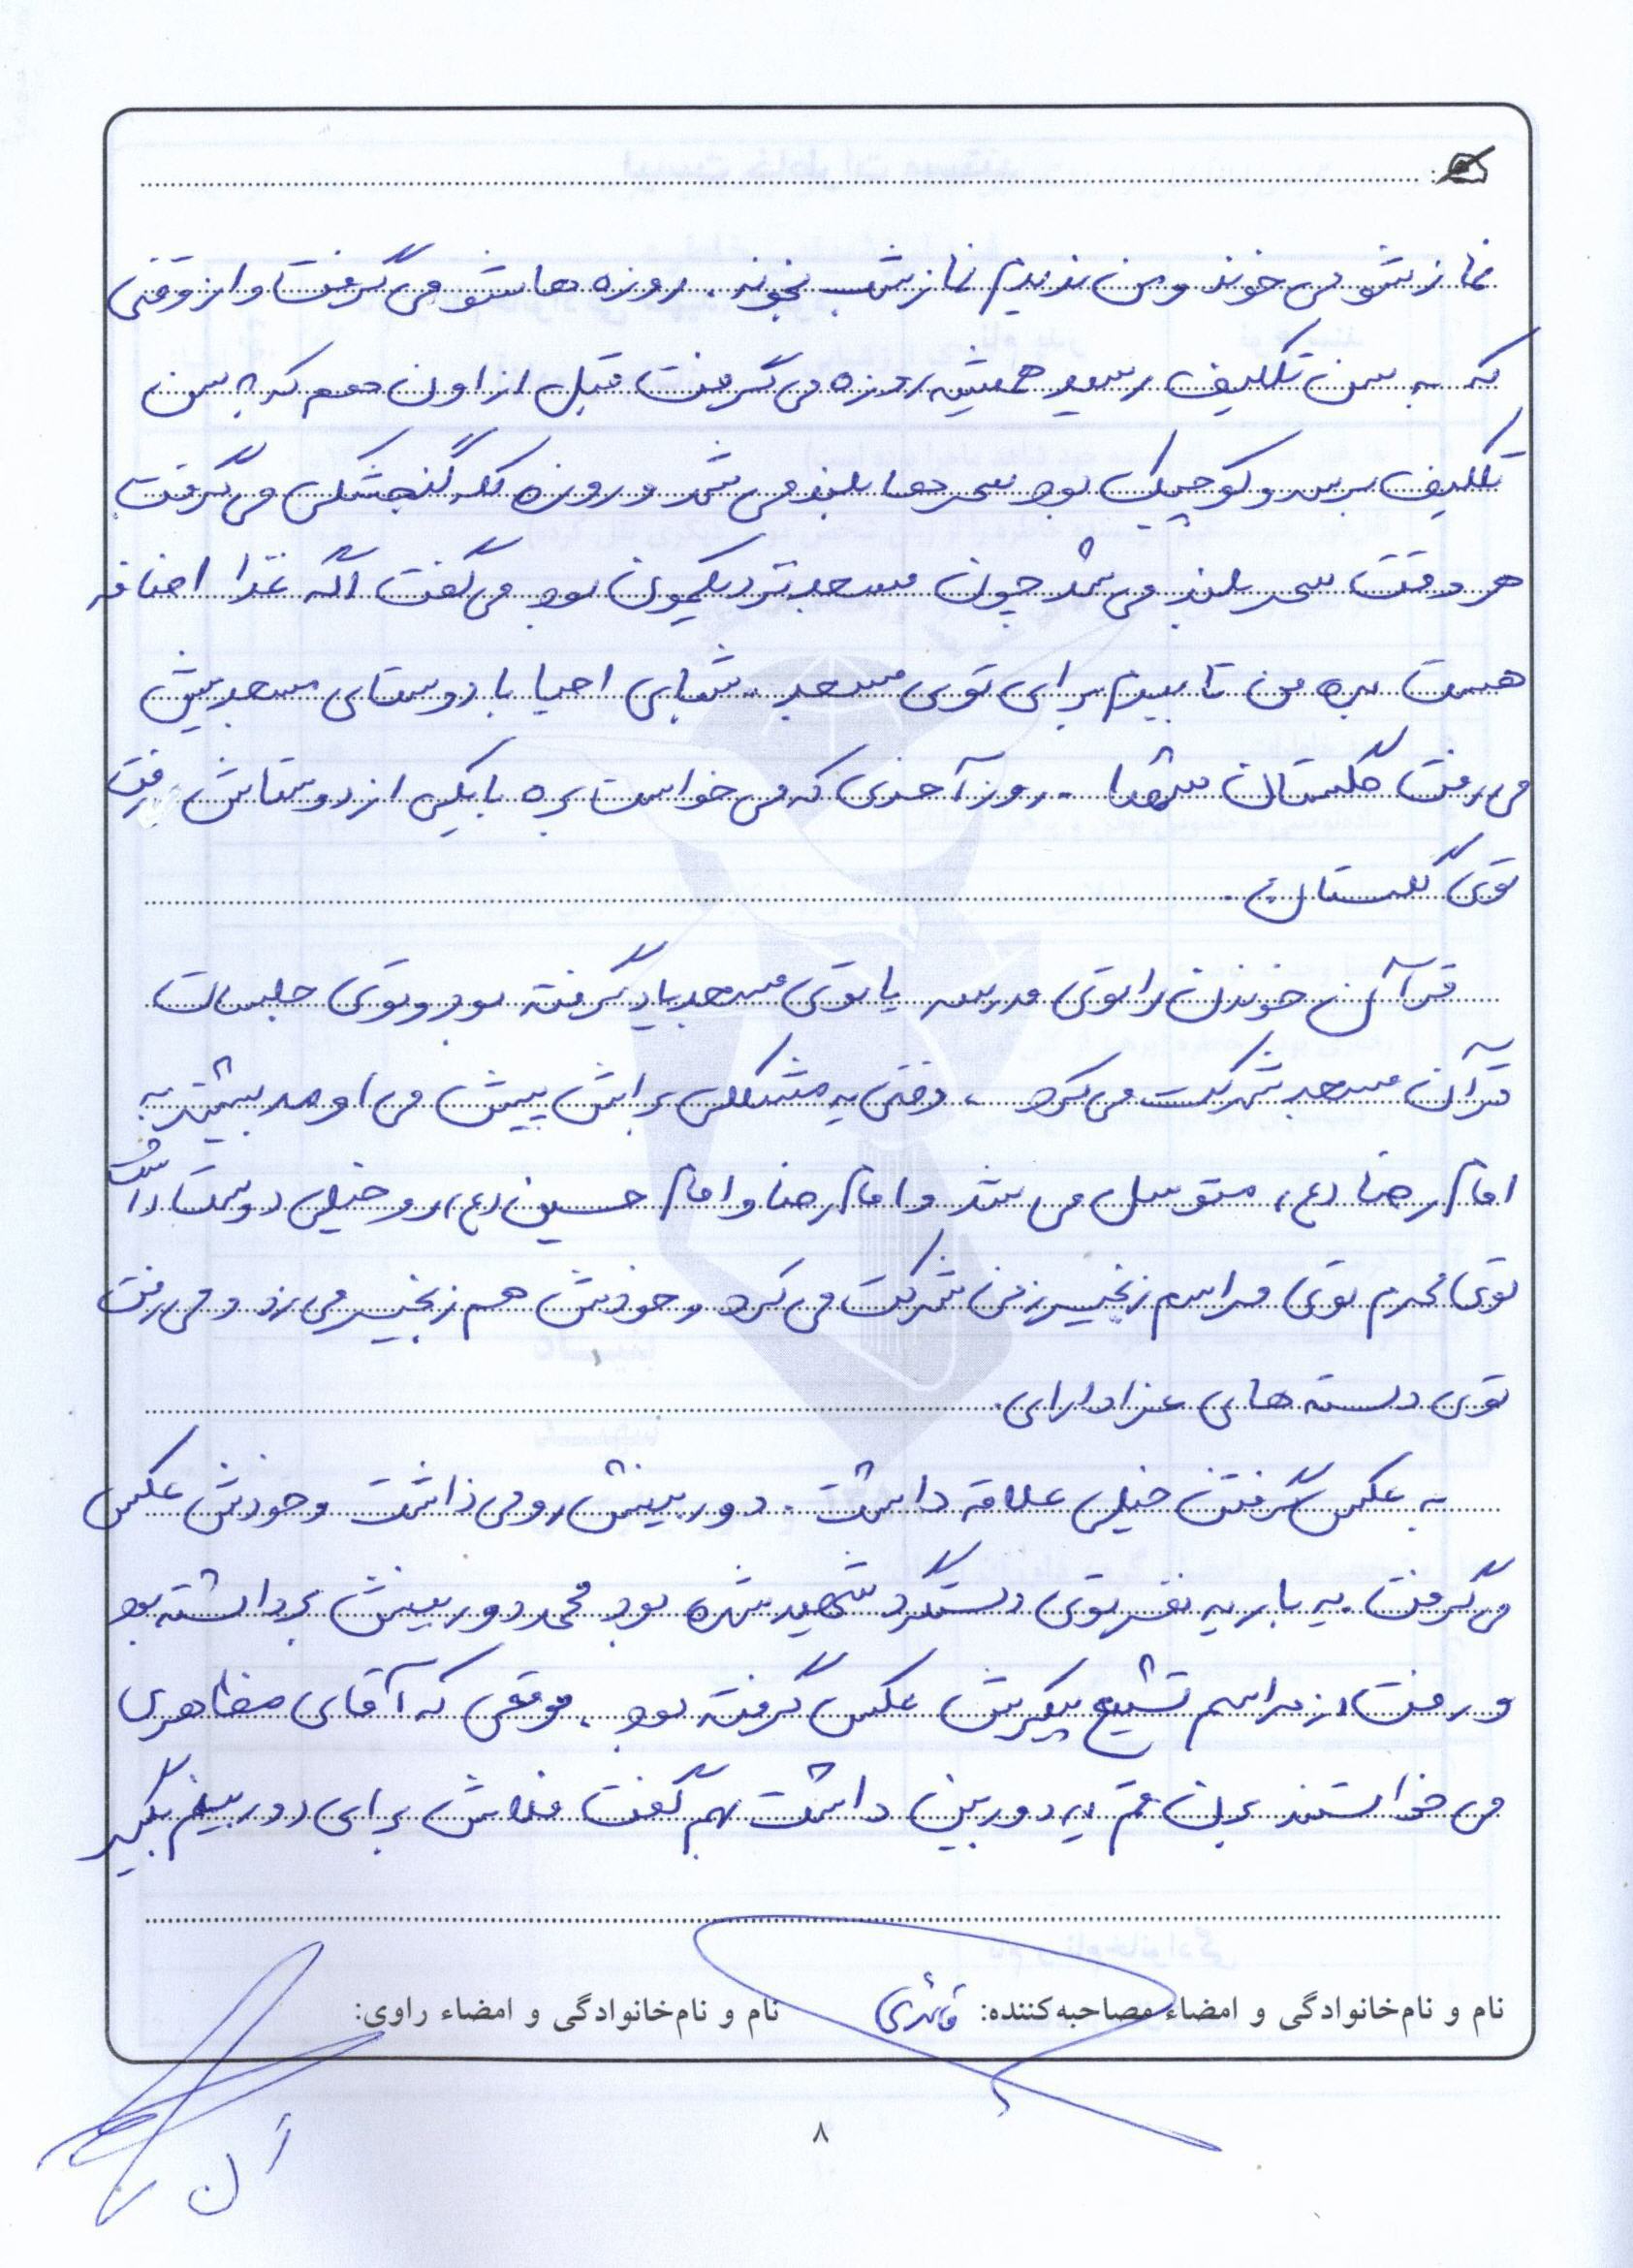 نمازشو می خوند و من ندیدم نماز شب بخونه. روزه هاشو می گرفت و از وقتی
که به سن تکلیف رسید همیشه روزه می گرفت قبل از اون هم که به سن
تکلیف برسه و کوچیک بود سحرها بلند می شد و روزه کله گنجشکی می گرفت
هر وقت سحر بلند می شد چون مسجد نزدیکمون بود می گفت اگه غذا اضافه
هست بده من تا ببرم برای توی مسجد. شبای احیا با دوستای مسجدیش
می رفت گلستان شهدا. روز آخری که می خواست بره با یکی از دوستاش رفت
توی گلستان.
قرآن خوندن را توی مدرسه یا توی مسجد یاد گرفته بود و توی جلسات
قرآن مسجد شرکت می کرد. وقتی یه مشکلی براش پیش می اومد بیشتر به
امام رضا (ع) متوسل می شد و امام رضا و امام حسین (ع) رو خیلی دوست داشت
توی محرم توی مراسم زنجیرزنی شرکت می کرد و خودش هم زنجیر می زد و می رفت
توی دسته های عزاداری.
به عکس گرفتن خیلی علاقه داشت. دوربینش رو می ذاشت و خودش عکس
می گرفت. یه بار یه نفر توی دستگرد شهید شده بود محمد دوربینش برداشته بود
و رفت از مراسم تشییع پیکرش عکس گرفته بود. موقعی که آقای مظاهری
می خواستند برن قم یه دوربین داشت بهم گفت فلاش برای دوربینم بگیر
نام و نام‌خانوادگی و امضاء مصاحبه‌کننده: قائدی نام و نام‌خانوادگی و امضاء راوی:
۸